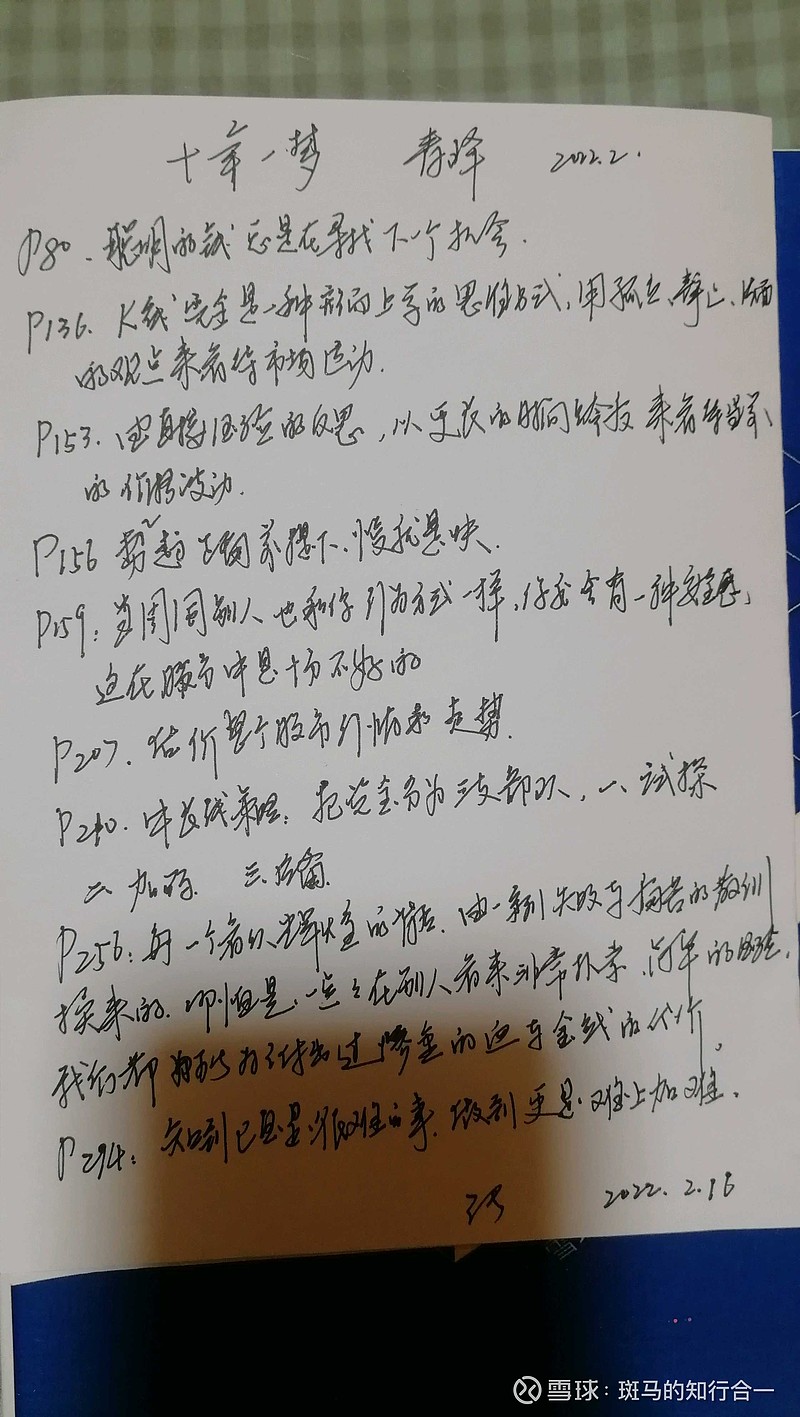 十年一梦 青泽 2022.2.
P80、聪明的钱总是在寻找下一个机会.
P136. K线完全是一种形而上学的思维方式,用孤立、静止、片面
的观点来看待市场运动.
P153. 直接经验的反思,以更长的时间跨度来看待
的价格波动.
P156 前提下、慢就是快.
P159:当周围别人也和你行为方式一样,你就会有一种安全感,
这在股市中是十分不好的
P207. 估价整个股市行情和走势.
P210. 中长线策略:把资金分为三支部队,一、试探
二、加码 三、后备
P256:每一个看似 的 ,由一系列失败与痛苦的教训
换来的.哪怕是一点点在别人看来非常朴素、简单的经验,
我们都为此付出过惨重的血与金钱的代价。
P294:知到已经是很难的事,做到更是难上加难.
2022.2.16
雪球:斑马的知行合一